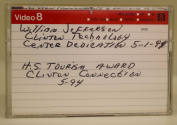 Video 8
William Jefferson
Clinton Technology
Center Dedication 5-1-94
H.S. Tourism Award
Clinton Connection
5-94